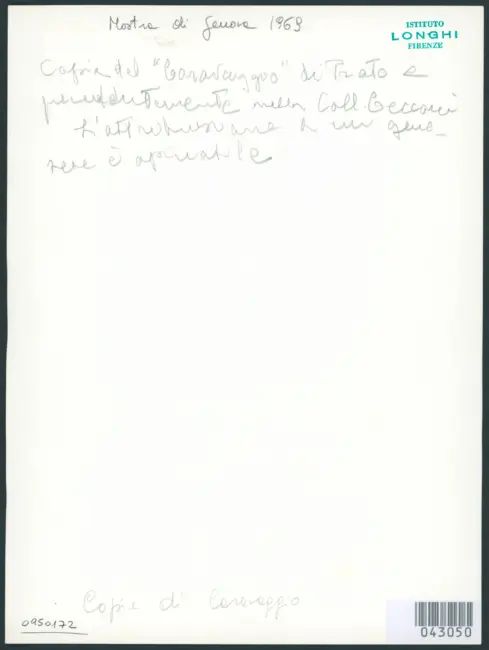 Mostra di Genova 1969
ISTITUTO
LONGHI
FIRENZE
Copia del "Caravaggio" di Prato e
precedentemente nella Coll. Cecconi
L'attribuzione a un geno-
vese è opinabile
Copie di Caravaggio
0950172
043050